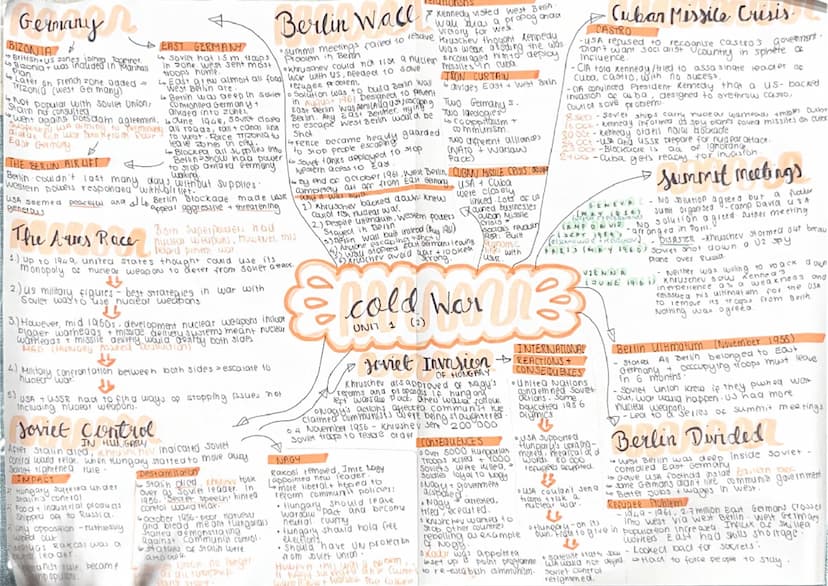 Germany
BIZONIA
British + US zones joined
Bizonia was included in Marshall Plan
Later on French zone added =
Trizonia (West Germany)
Not popular with Soviet Union,
Stalin not consulted
Went against Potsdam agreement
EAST GERMANY
Soviet had 1.5 m troops
in zone, West sent most
troops home.
East grew almost all food
West Berlin ate
Berlin was deep in Soviet
controlled Germany +
divided into zones.
June 1948, Soviet closed
all roads, rail + canal links
to West. Force Truman to
leave zones in city
Blocked all supplies into
Berlin - should had power
to stop divided Germany
working
THE BERLIN AIRLIFT
Berlin couldn't last many days without supplies
Western powers responded with airlift.
USA seemed peaceful and generous
Berlin Blockade made USSR
appear aggressive + threatening
Berlin Wall
Summit meetings failed to resolve
problem in Berlin
Khrushchev could not risk a nuclear
war with US, needed to solve
refugee problem
Solution was to build Berlin Wall
in August 1961. Designed to prevent
East Berlin
Berlin. Any East Berliner
to escape West Berlin would be
shot
Fence become heavily guarded
to stop people escaping
Soviet tanks deployed to stop
Western access to East.
By end of October 1961, West Berlin
completely cut off from East Germany
1) Khrushchev backed down, knew
could risk nuclear war.
2) Despite Ultimatum, Western powers
stayed in Berlin
3) Berlin Wall built instead (Aug 1961)
Kennedy visited West Berlin.
Wall was a propaganda
victory for West.
Khrushchev thought Kennedy
was weak allowing the wall
encouraged him to deploy
missiles in Cuba
IRON CURTAIN
divides East + West Berlin
Two Germanys
Two ideologies
capitalism +
communism.
Two different alliances
(NATO + Warsaw
Pact)
CUBAN MISSILE CRISIS
USA + Cuba
were closely
linked. Lots of US
owned businesses
Cuban Missile Crisis.
CASTRO
USA refused to recognise Castro's government
Didn't want socialist country in sphere of
influence.
CIA told Kennedy/tried to assassinate leader of
Cuba, Castro, with no success.
CIA convinced President Kennedy that a US-backed
invasion of Cuba, designed to overthrow Castro,
could solve problem
Summit Meetings
GENEVA
(MAY 1959)
No solution agreed but a further
summit organised - Camp David USA
No solution agreed. Further meeting
arranged in Paris.
PARIS (MAY 1960)
Disaster - Khrushchev stormed out because
Soviets shot down a U2 spy
plane over Russia
VIENNA
(JUNE 1961)
Neither was willing to back down
Khrushchev saw Kennedy's
inexperience as a weakness and
reissued his ultimatum for the USA
to remove its troops from Berlin
Nothing was agreed
The Arms Race
Both Superpowers had
nuclear weapons
1.) Up to 1949, United States thought could use its
monopoly of nuclear weapon to deter from Soviet attack
2.) US military figures - best strategies in war with
Soviet was to use nuclear weapons
3.) However, mid 1950s, development nuclear weapons include
bigger warheads + missile delivery systems meant nuclear
warheads + missile delivery would destroy both sides
MAD (Mutually Assured Destruction)
4.) Military confrontation between both sides = escalate to
nuclear war.
5.) USA + USSR had to find ways of stopping issues not
including nuclear weapons.
cold War
UNIT 1 (2)
Soviet Invasion
OF HUNGARY
Khrushchev disapproved of Nagy's
reforms and proposals if Hungary
left Warsaw Pact, others would follow
Nagy's actions affected communist rule
claimed communists were being slaughtered
4 November 1956 - Khrushchev sent 200'000
Soviet troops to restore order
CONSEQUENCES
Over 5000 Hungarian
troops killed + 1000
Soviets were killed,
soldiers loyal to Nagy
Nagy + government
deposed
Nagy - arrested,
tried, executed.
Khrushchev wanted to
stop other countries
rebelling as example
of Nagy
Kadar was appointed
set up 15 point programme
to re-establish communism
INTERNATIONAL
REACTIONS +
CONSEQUENCES
United Nations
condemned Soviet
actions. Some
boycotted 1956
Olympics
USA supported
Hungary's
USA couldn't send
troops = risk a
nuclear war.
Hungary - on its
own, had to give in
Satellite states saw
USA would not defend
Soviet control
retightened.
Berlin Ultimatum (November 1958)
Stated all Berlin belonged to East
Germany + occupying troops must leave
in 6 months
Soviet Union knew if they pushed West
out, war would happen. US had more
nuclear weapons
Led to a series of summit meetings
Berlin Divided
West Berlin was deep inside Soviet-
controlled East Germany
Gave USA foothold inside Eastern Bloc
Some Germans didn't like communist government
Better jobs + wages in West.
Refugee Problem
1949 - 1961, 2.7 million East Germans crossed
into West via West Berlin. West German
population increased. Influx of skilled
workers. East had skills shortage
Looked bad for Soviets!
Had to force people to stay.
Soviet Control
IN HUNGARY
After Stalin died, Khrushchev indicated Soviet
control would relax. When Hungary started to move away
Soviet tightened rule -
IMPACT
Hungary suffered under
Stalin's control
Food + industrial products
shipped off to Russia.
Any opposition - ruthlessly
wiped out
Matyas Rakosi was a
cruel leader
Destalinisation
Stalin died, Khrushchev took
over as Soviet leader. In
1956, 'Secret Speech' hinted
control would relax.
October 1956 - poor harvests
and bread meant Hungarians
started demonstrating
against Communist control.
Statues of Stalin were
NAGY
Rakosi removed, Imre Nagy
appointed new leader
more liberal + hoped to
reform communist policies
Hungary should leave
Warsaw Pact and become
neutral country
Hungary should hold free
elections.
Should have UN protection
from Soviet Union